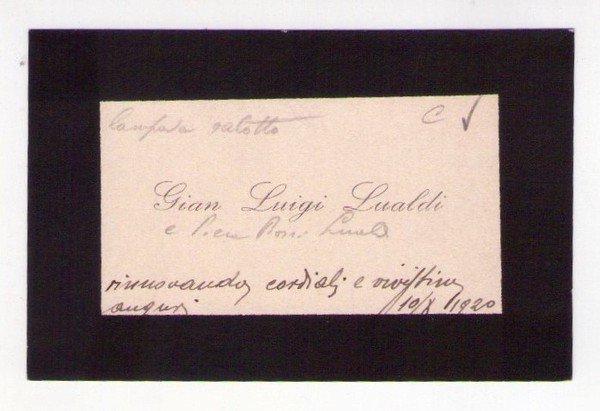 Lampada salotto C
Gian Luigi Lualdi
e Piera Rossi Lualdi
rinnovando cordiali e vivissimi
auguri 10/X 1920